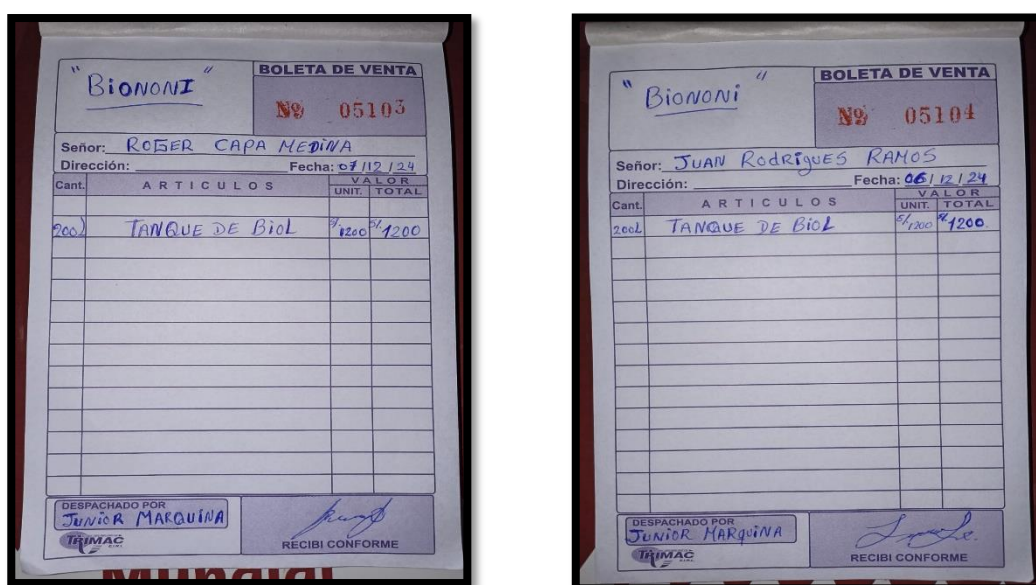 "BiONONI"
BOLETA DE VENTA
Nº 05103
Señor: ROGER CAPA MEDINA
Dirección: Fecha: 07/12/24
Cant. ARTICULOS VALOR
UNIT. TOTAL
200L TANQUE DE BiOL S/.1200 S/.1200
DESPACHADO POR
JUNIOR MARQUINA
TRIMAC
RECIBI CONFORME
Mundial
"Biononi"
BOLETA DE VENTA
Nº 05104
Señor: JUAN RodRigues RAMOS
Dirección: Fecha: 06/12/24
Cant. ARTICULOS VALOR
UNIT. TOTAL
200L TANQUE DE BiOL S/.1200 S/.1200
DESPACHADO POR
JUNIOR MARQUINA
TRIMAC
RECIBI CONFORME